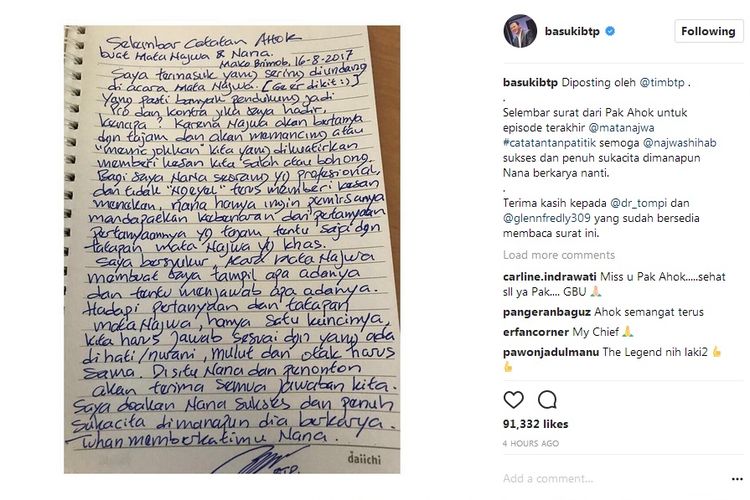 Selembar Catatan Ahok
buat Mata Najwa & Nana.
Mako Brimob, 16-8-2017
Saya termasuk yang sering diundang
di acara Mata Najwa. [Geer dikit :)]
Yang pasti banyak pendukung jadi
pro dan kontra jika saya hadir,
kenapa? Karena Najwa akan bertanya
dgn tajam dan akan memancing atau
"memojokkan" kita yang dikuatirkan
memberi kesan kita salah atau bohong.
Bagi saya Nana seorang yg profesional,
dan tidak "Ngeyel" terus memberi kesan
menekan, nana hanya ingin pemirsanya
mendapatkan kebenaran dari pertanyaan
pertanyaannya yg tajam tentu saja dgn
tatapan mata Najwa yg khas.
Saya bersyukur Acara Mata Najwa
membuat saya tampil apa adanya
dan tentu menjawab apa adanya.
Hadapi pertanyaan dan tatapan
mata Najwa, hanya satu kuncinya,
kita harus jawab sesuai dgn yang ada
di hati/nurani, mulut dan otak harus
sama. Disitu Nana dan penonton
akan terima semua jawaban kita.
Saya doakan Nana sukses dan penuh
sukacita dimanapun dia berkarya.
Tuhan memberkatimu Nana.
BTP.
daiichi
basukibtp
Following
basukibtp Diposting oleh @timbtp .
.
Selembar surat dari Pak Ahok untuk
episode terakhir @matanajwa
#catatantanpatitik semoga @najwashihab
sukses dan penuh sukacita dimanapun
Nana berkarya nanti.
.
Terima kasih kepada @dr_tompi dan
@glennfredly309 yang sudah bersedia
membaca surat ini.
Load more comments
carline.indrawati Miss u Pak Ahok.....sehat
sll ya Pak.... GBU 🙏
pangeranbaguz Ahok semangat terus
erfancorner My Chief 🙏
pawonjadulmanu The Legend nih laki2 👍
👍
91,332 likes
4 HOURS AGO
Add a comment...